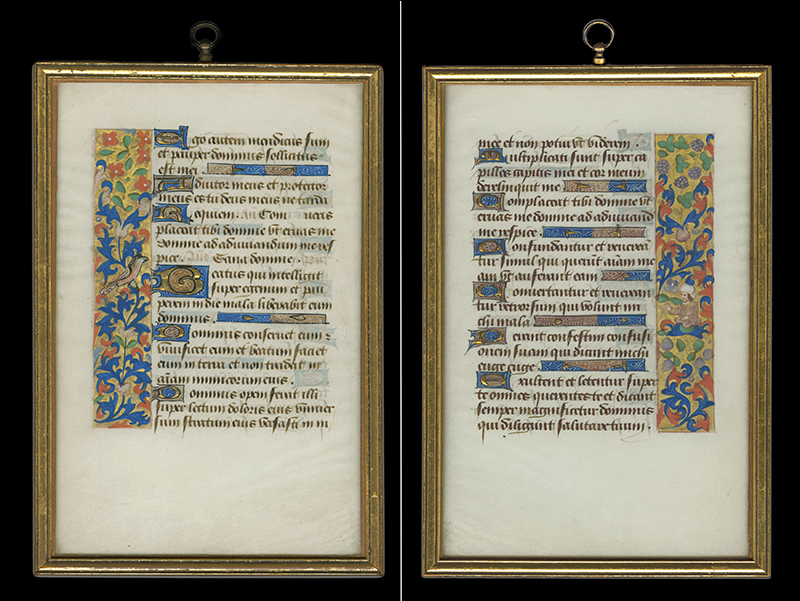 Ego autem mendicus sum
et pauper dominus sollicitus
est mei.
Adiutor meus et protector
meus es tu deus meus ne tarda
Requiem. An Com ueris
placeat tibi domine vt eruas me
domine ad adiuuandum me res
pice. Sana domine.
Beatus qui intelligit
super egenum et pau
perem in die mala liberabit eum
dominus.
Dominus conseruet eum
viuificet eum et beatum faciat
eum in terra et non tradat in
aiam inimicorum eius.
Dominus opem ferat illi
super lectum doloris eius vniuer
sum stratum eius versasti in in
mee et non potui vt viderem
Multiplicati sunt super ca
pillos capitis mei et cor meum
dereliquit me
Complaceat tibi domine vt
eruas me domine ad adiuuand
me respice.
Confundantur et reuerean
tur simul qui querunt aiam me
am vt auferant eam
Conuertantur et reuerean
tur retrorsum qui volunt mi
chi mala
Ferant confestim confusi
onem suam qui dicunt michi
euge euge.
Exultent et letentur super
te omnes querentes te et dicant
semper magnificetur dominus
qui diligunt salutare tuum.